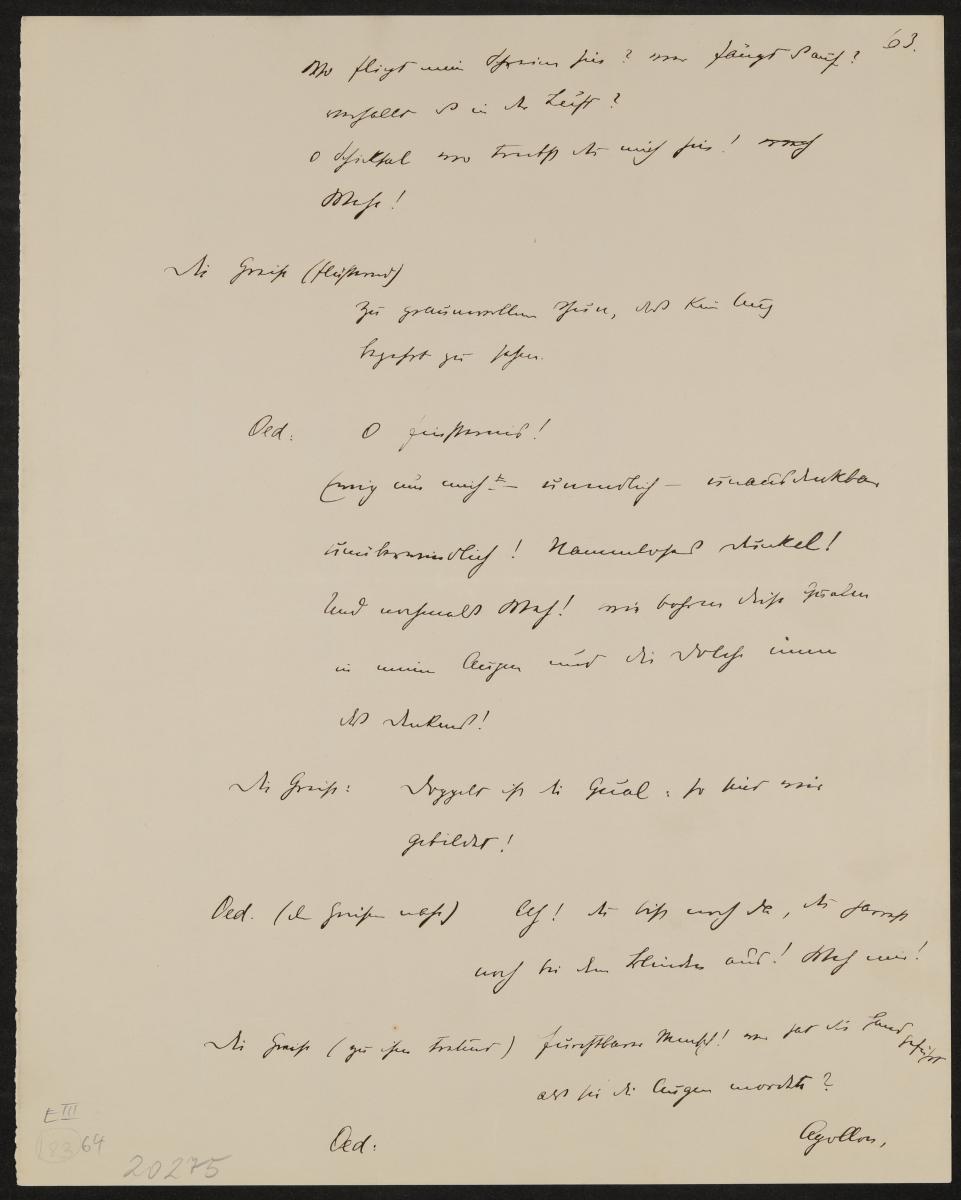 63.
Wo fliegt mein Schreien hin? wer fängt's auf?
verhallt es in der Luft?
o Schicksal wo treibst du mich hin!
Wehe!
Die Greise (flüsternd)
Zu grauenvollem Thun, das kein Aug
begehrt zu sehen.
Oed: O Finsternis!
Ewig um mich — unendlich — unausdenkbar
unüberwindlich! Namenloses Dunkel!
Und nochmals Weh! wie bohren diese Spalten
in meine Augen und die Dolche innen
des Denkens!
Die Greise: Doppelt ist die Qual: so sind wir
gebildet!
Oed. (den Greisen nahe) Ach! du bist noch da, du harrest
noch bei dem Blinden aus! Weh mir!
Die Greise (zu ihm tretend) Furchtbarer Mensch! wer hat die Hand geführt
als sie die Augen mordete?
Oed: Apollon,
E III
83 64
20275